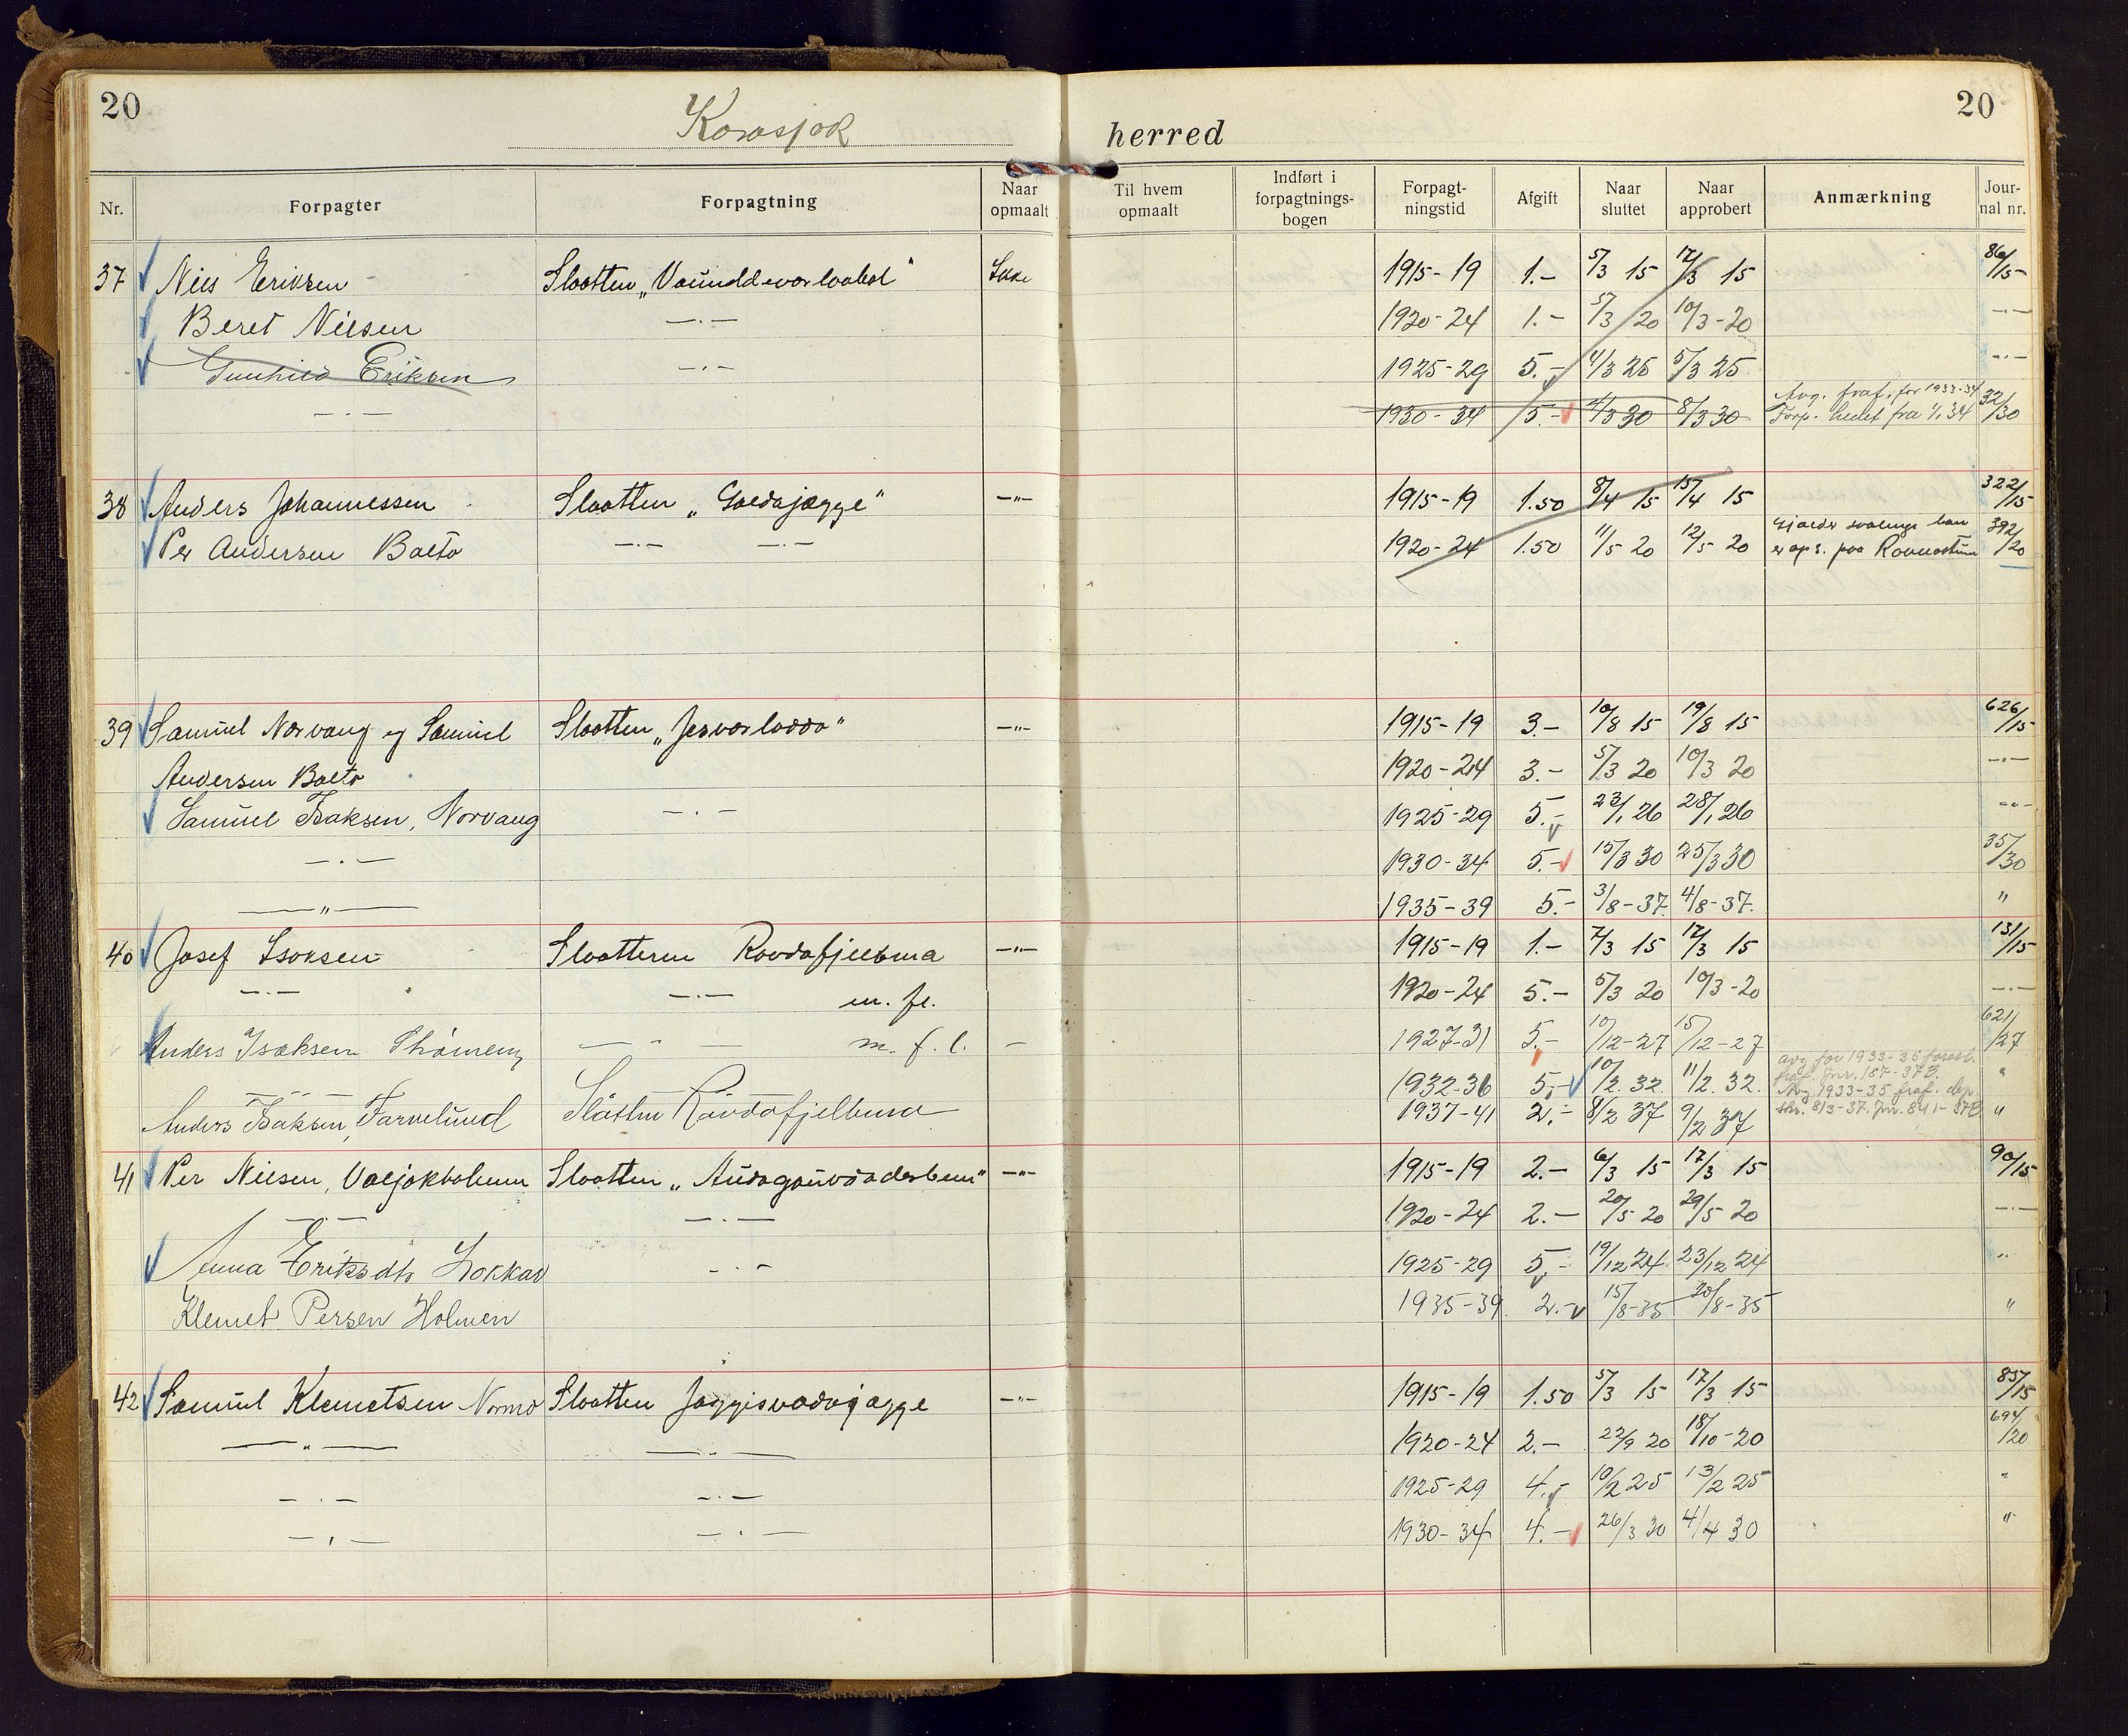 20
Karasjok herred
20
Nr. Forpagter Forpagtning Naar opmaalt Til hvem opmaalt Indført i forpagtnings-bogen Forpagt-ningstid Afgift Naar sluttet Naar approbert Anmærkning Jour-nal nr.
37 Nils Eriksen Slaatten Ikke 1915-19 1.- 5/3 15 12/3 15 86/15
Beret Nilsen —·— 1920-24 1.- 5/3 20 10/3-20 —·—
Gunhild Eriksen —·— 1925-29 5.- 4/3 25 5/3 25 —·—
—·— 1930-34 5.- 4/3 30 8/3 30 Avg. fraf. for 1933-34 Forp. hevet fra 1/1 34 32/30
38 Anders Johannessen Slaatten „Gaedajægge" —"— 1915-19 1.50 8/4 15 15/4 15 322/15
Per Andersen Balto —·— —·— 1920-24 1.50 11/5 20 12/5 20 392/20
39 Samuel Norvang og Samuel Slaatten „Jesvarladda" —"— 1915-19 3.- 10/8 15 19/8 15 626/15
Andersen Balto 1920-24 3.- 5/3 20 10/3 20 —·—
Samuel Isaksen, Norvang —·— 1925-29 5.- 23/1 26 28/1 26 —"—
—·— 1930-34 5.- 15/3 30 25/3 30 35/30
—"— 1935-39 5.- 3/8-37. 4/8-37. "
40 Josef Isaksen Slaatterne Ravdafjielbma —"— 1915-19 1.- 7/3 15 12/3 15 131/15
—·— —·— m. fl. 1920-24 5.- 5/3 20 10/3-20 —·—
Anders Isaksen — " — m. f. l. — 1927-31 5.- 10/12-27 15/12-27 621/27
—"— 1932-36 5.- 10/2. 32. 11/2. 32. avg for 1933-35 foresl. fraf. Jnr. 187-37B. "
Anders Isaksen, Farvelund Slåtten Råvdafjelbma 1937-41 2.- 8/2 37 9/2 37 Avg. 1933-35 fraf. dep. skr. 8/3-37. Jnr. 841-37B "
41 Per Nilsen, Valjokholmen Slaatten —"— 1915-19 2.- 6/3 15 12/3 15 90/15
—"— —·— 1920-24 2.- 20/5 20 29/5 20 —·—
Anna Eriksdtr Lokkar —·— 1925-29 5.- 19/12 24 23/12 24 "
Klemet Persen Holmen 1935-39. 2.- 15/8-35 20/8-35 "
42 Samuel Klemetsen Normo Slaatten Jæggisvadajægge —"— 1915-19 1.50 5/3 15 12/3 15 85/15
—"— —"— 1920-24 2.- 22/9 20 18/10-20 694/20
—·— —·— 1925-29 4.- 10/2 25 13/2 25 "
—·— —·— 1930-34 4.- 26/3 30 4/4 30 "